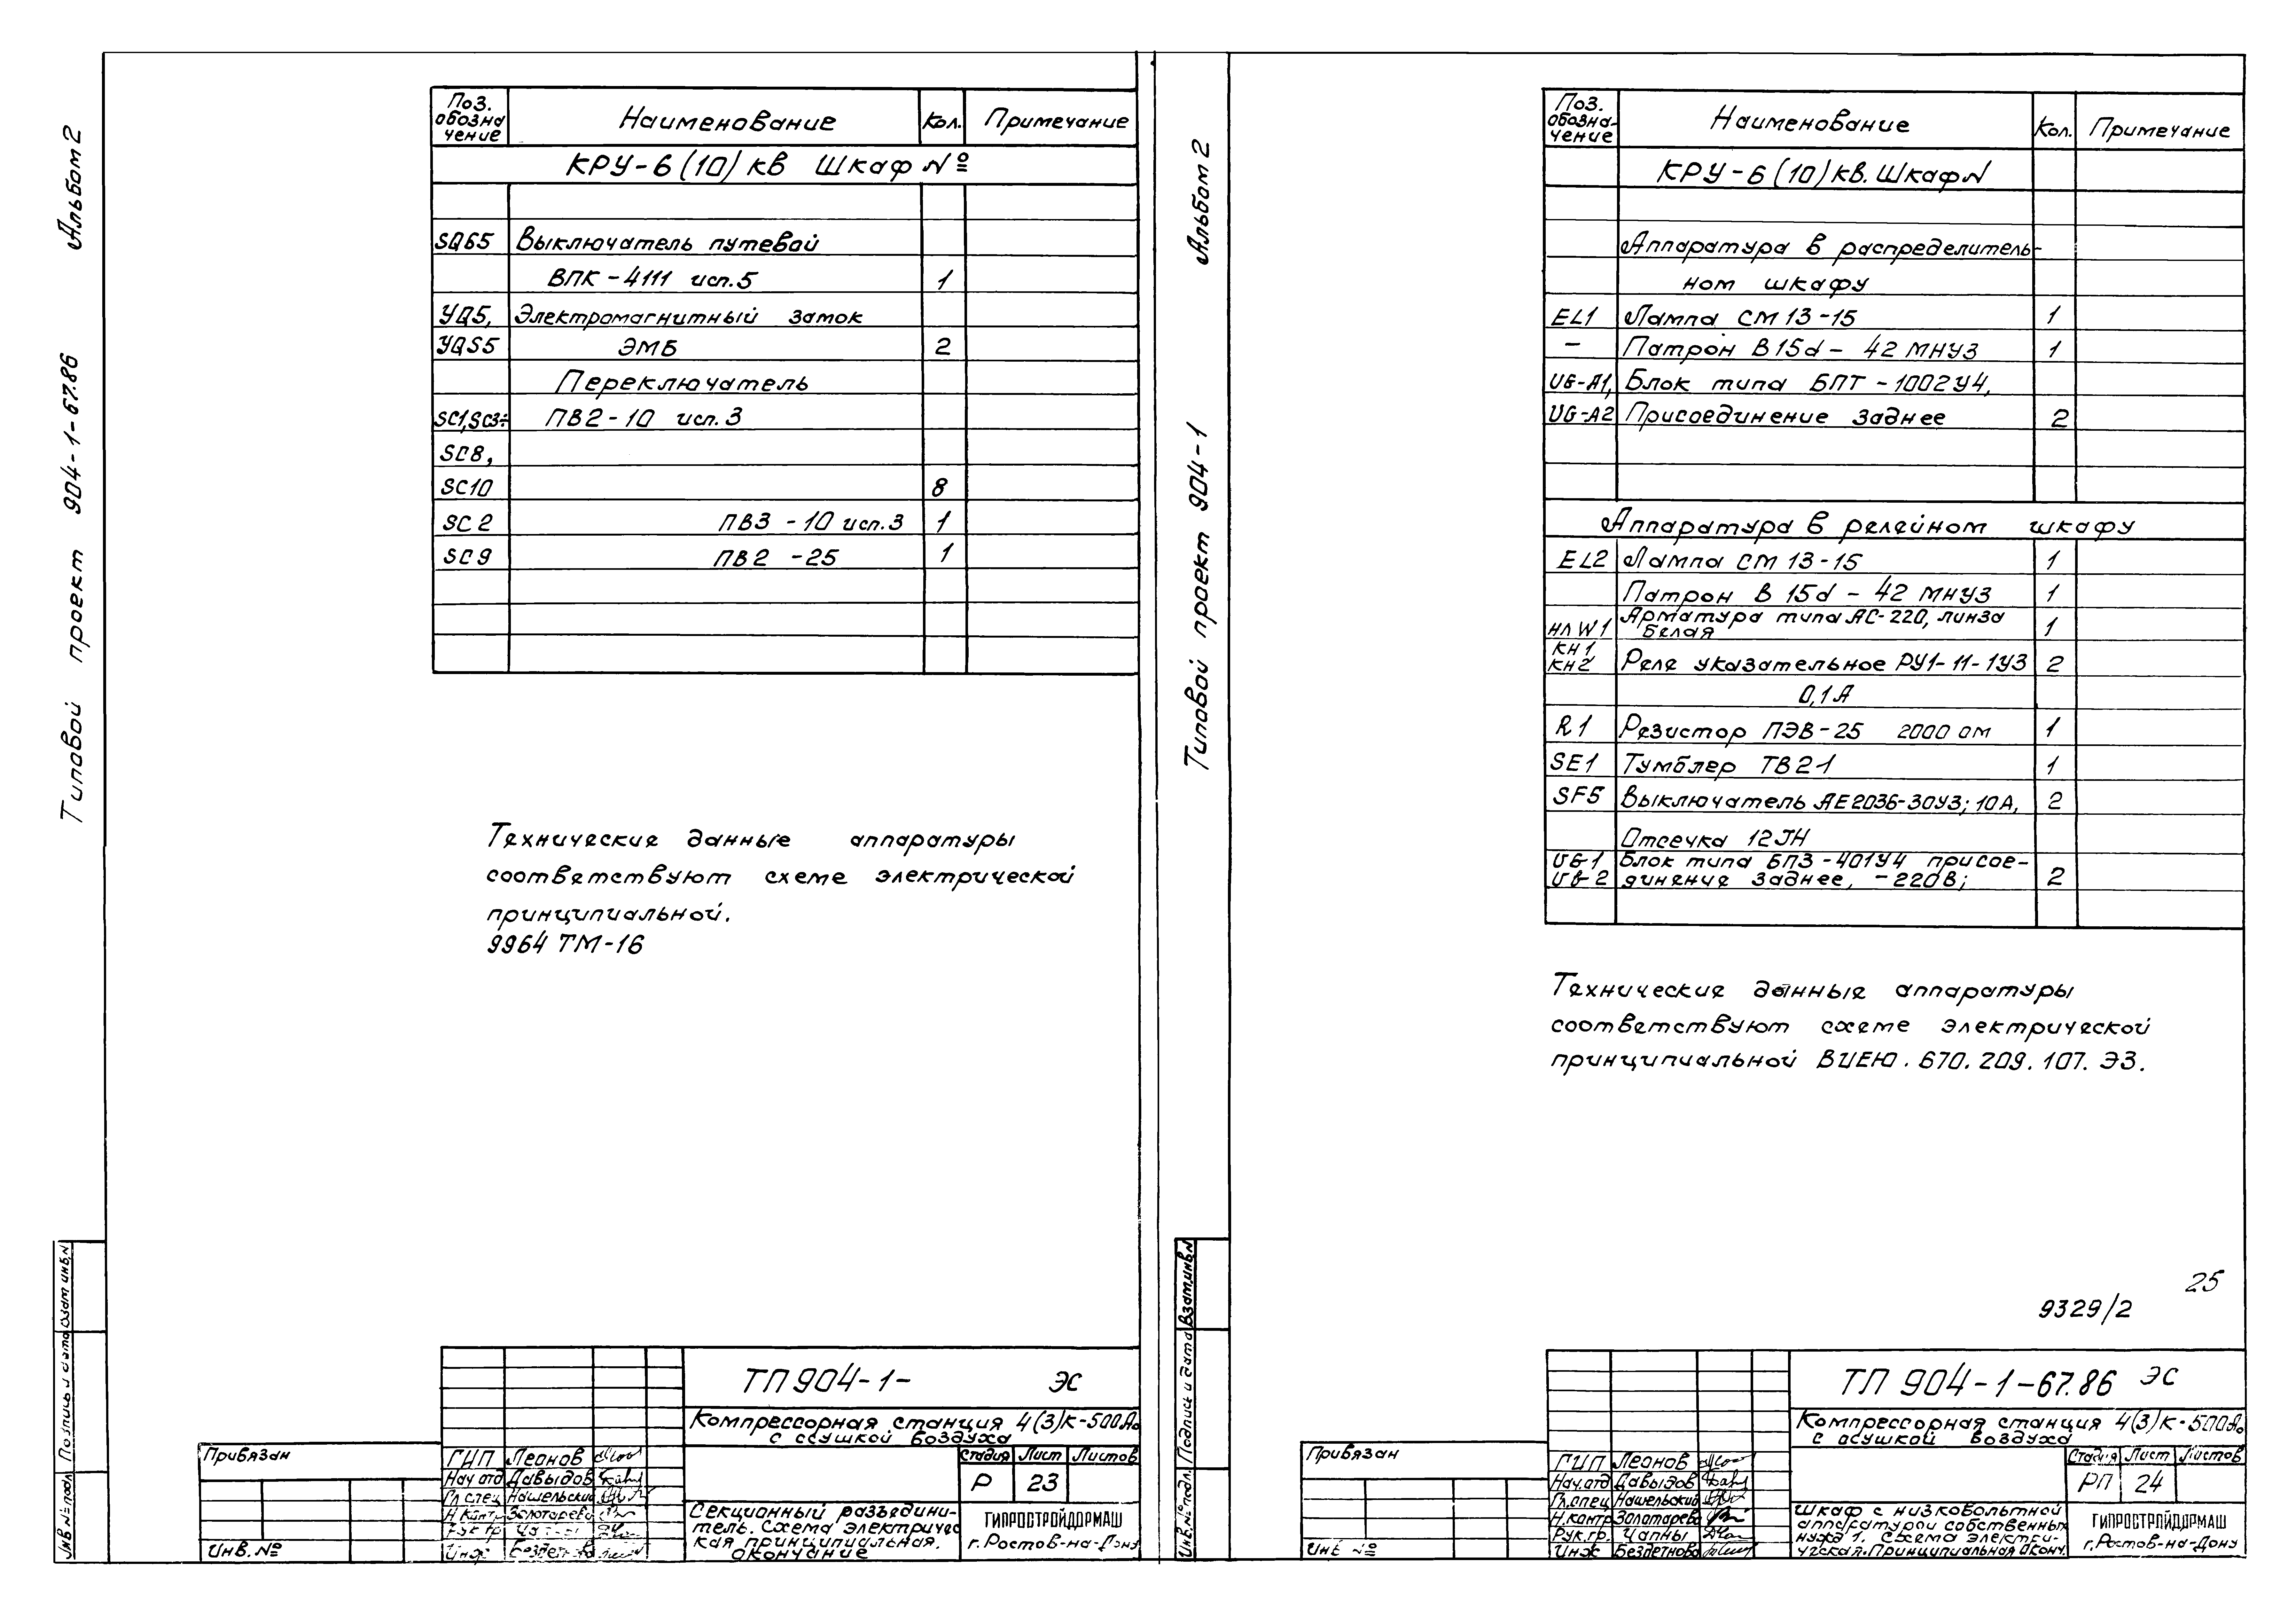 Альбом 2
Типовой проект 904-1-67.86
Поз. обозна чение
Наименование
Кол.
Примечание
КРУ-6 (10) кв Шкаф №
SQ65 Выключатель путевой
ВПК-4111 исп.5 1
YQ5, Электромагнитный заток
YQS5 ЭМБ 2
Переключатель
SC1,SC3÷ ПВ2-10 исп.3
SC8,
SC10 8
SC2 ПВ3 -10 исп.3 1
SC9 ПВ2 -25 1
Технические данные аппаратуры
соответствуют схеме электрической
принципиальной.
9964 ТМ-16
Взам инв.N
Подпись и дата
Инв № подл
Привязан
Инв. №
ТП 904-1- ЭС
Компрессорная станция 4(3)К-500А
с осушкой воздуха
ГИП Леонов
Нач отд Давыдов
Гл спец Нашельский
Н контр Золотарева
Рук гр.
Инж
Стадия Лист Листов
Р 23
Секционный разъедини-
тель. Схема электричес
кая принципиальная.
Окончание
ГИПРОСТРОЙДОРМАШ
г. Ростов-на-Дону
Альбом 2
Типовой проект 904-1
Поз. обозна- чение
Наименование
Кол.
Примечание
КРУ-6 (10) кв. Шкаф N
Аппаратура в распределитель-
ном шкафу
EL1 Лампа СМ 13-15 1
- Патрон В15d- 42 МНУЗ 1
UG-A1, Блок типа БПТ-1002У4,
UG-A2 Присоединение заднее 2
Аппаратура в релейном шкафу
EL2 Лампа СМ 13-15 1
Патрон В 15d - 42 МНУЗ 1
НЛW1 Арматура типа АС-220, линза
белая 1
KH1
KH2 Реле указательное РУ1-11-1У3 2
0,1 А
R1 Резистор ПЭВ-25 2000 ом 1
SE1 Тумблер ТВ21 1
SF5 Выключатель АЕ2036-30У3; 10А, 2
Отсечка 12 JН
UG-1 Блок типа БПЗ-401У4 присое-
UG-2 динение заднее, -220В; 2
Технические данные аппаратуры
соответствуют схеме электрической
принципиальной ВИЕЮ. 670. 209. 107. ЭЗ.
25
9329/2
Взам.инв.N
Подпись и дата
Инв.№подл.
Привязан
Инв №
ТП 904-1-67.86 ЭС
Компрессорная станция 4(3)К-500А
с осушкой воздуха
ГИП Леонов
Нач.отд Давыдов
Гл.спец Нашельский
Н.контр Золотарева
Рук.гр. Чапны
Инж Бездетнова
Стадия Лист Листов
РП 24
Шкаф с низковольтной
аппаратурой собственных
нужд 1. Схема электри-
ческая. Принципиальная Оконч.
ГИПРОСТРОЙДОРМАШ
г. Ростов-на-Дону